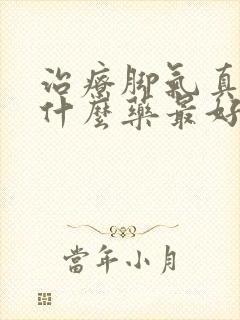 治療脚氣真
什麼藥最好
當年小月